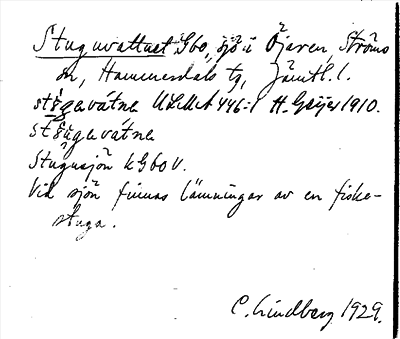 Stuguvattnet Gbo, sjö i Öjaren, Ströms
sn, Hammerdals tg, Jämtl. l.
stŏgavátne ULMA 446:1 H. Geijer 1910.
stŏugavátne
Stugusjön kGbo V.
Vid sjön finnas lämningar av en fiske-
stuga.
C. Lindberg 1929.